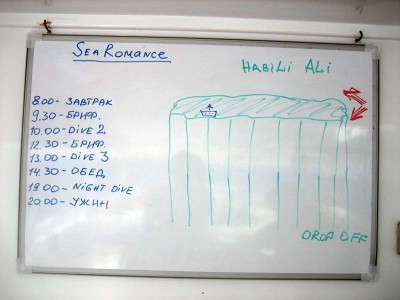 SEA ROMANCE
HABILI ALI
8.00- ЗАВТРАК
9.30- БРИФ.
10.00- DIVE 2
12.30- БРИФ.
13.00- DIVE 3
14.30- ОБЕД
19.00- NIGHT DIVE
20.00- УЖИН
DROP OFF